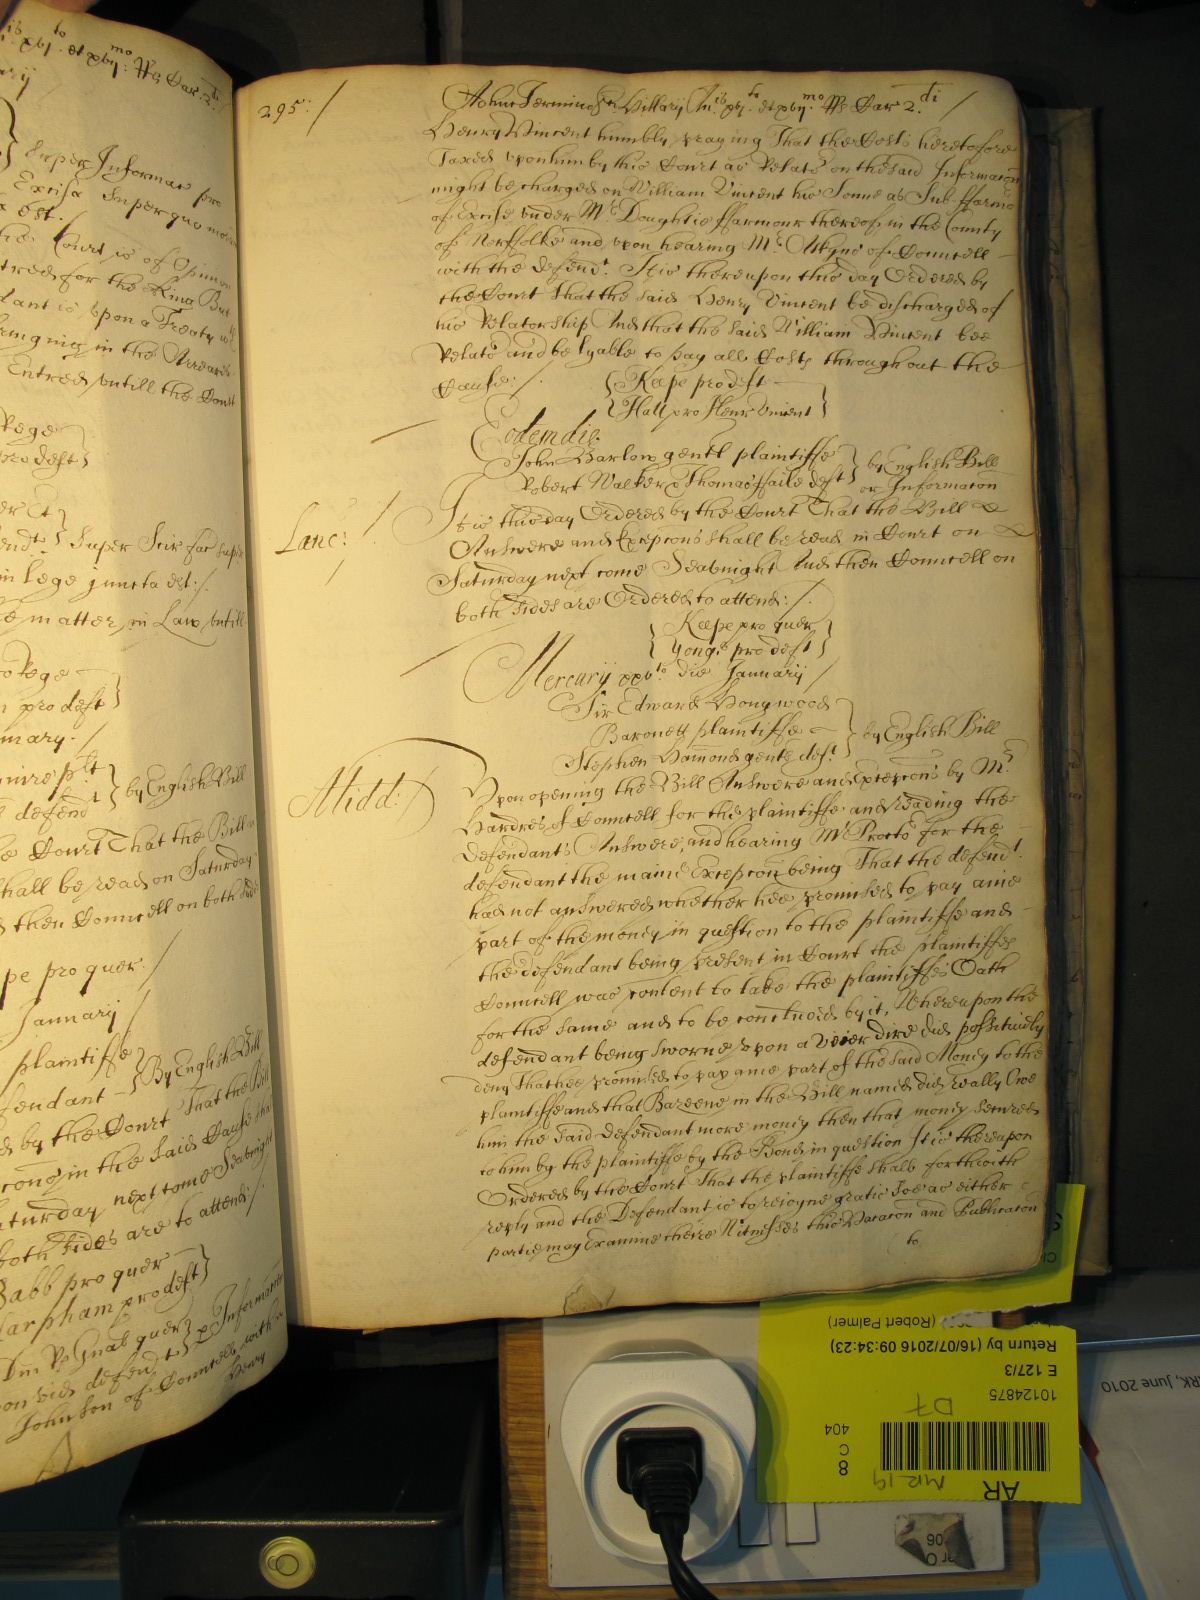 ib xvj to et xvij mo RRs Car 2 di
Super Informac pro
Excisa Super quo
est./
the Court is of Opinion
tred for the King But
dant is upon a Treaty
bringing in the Arreares
Entred untill the Court
Rege
pro deft
Super Scir fac super
in lege juncta est:/.
matter in Law untill
Rege
pro deft
by English Bill
defendt
Court That the Bill
shall be read on Saturday
then Councell on both
pe pro quer:/
January /
plaintiffe
By English Bill
fendant
by the Court That the Bill
in the said Cause
aturday next come Seabnight
both sides are to attend:/.
Babb pro quer
arpham pro deft
defendt
Johnson of Councell with
Henry
295: /
John Termino Sci Hillarij Annis xvj to et xvij mo RRs Car 2 di /
Henry Vincent humbly praying That the Costs heretofore
Taxed upon him by this Court as Relator on the said Informacon
might be charged on William Vincent his Sonne as Sub ffarmor
of Excise under Mr Doughtie ffarmour thereof in the County
of Norffolke and upon hearing Mr Atkyns of Councell
with the defendt. It is thereupon this day Ordered by
the Court That the said Henry Vincent be discharged of
his Relatorship And that the said William Vincent bee
Relator and be lyable to pay all Costs throughout the
Cause:/.
Keepe pro deft
Hall pro Henr Vincent
Eodem die
John Barlow gentl plaintiffe
by English Bill
Robert Walker & Thomas ffaile deft
or Informacon
Lanc: /
It is this day Ordered by the Court That the Bill
Answere and Excepcons shall be read in Court on
Saturday next come Seabnight And then Councell on
both sides are Ordered to attend:/.
Keepe pro quer
Yonge pro deft
Mercurij xxv to die January /
Sir Edward Hongwood
Baronett plaintiffe
by English Bill
Stephen Hamond gentl deft
Midd:
Upon opening the Bill Answere and Excepcons by Mr
Hardres of Councell for the plaintiffe and reading the
defendants Answere, and hearing Mr Proctor for the
defendant the maine Excepcon being That the defendt.
had not answered whether hee promised to pay anie
part of the money in question to the plaintiffe and
the defendant being present in Court the plaintiffes
Councell was content to take the plaintiffes Oath
for the same and to be concluded by it, Whereupon the
defendant being sworne upon a veier dire did possitively
deny That hee promised to pay anie part of the said Money to the
plaintiffe and that Bareene in the Bill named did really Owe
him the said defendant more money then that money secured
to him by the plaintiffe by the Bond in question It is thereupon
Ordered by the Court That the plaintiffe shall forthwith
reply and the Defendant is to rejoyne gratis Soe as either
partie may Examine theire Witnesses this Vacacon and Publicacon
to
AR
MR 19
8
C
404
D7
10124875
E 127/3
Return by (16/07/2016 09:34:23)
(Robert Palmer)
RK, June 2010